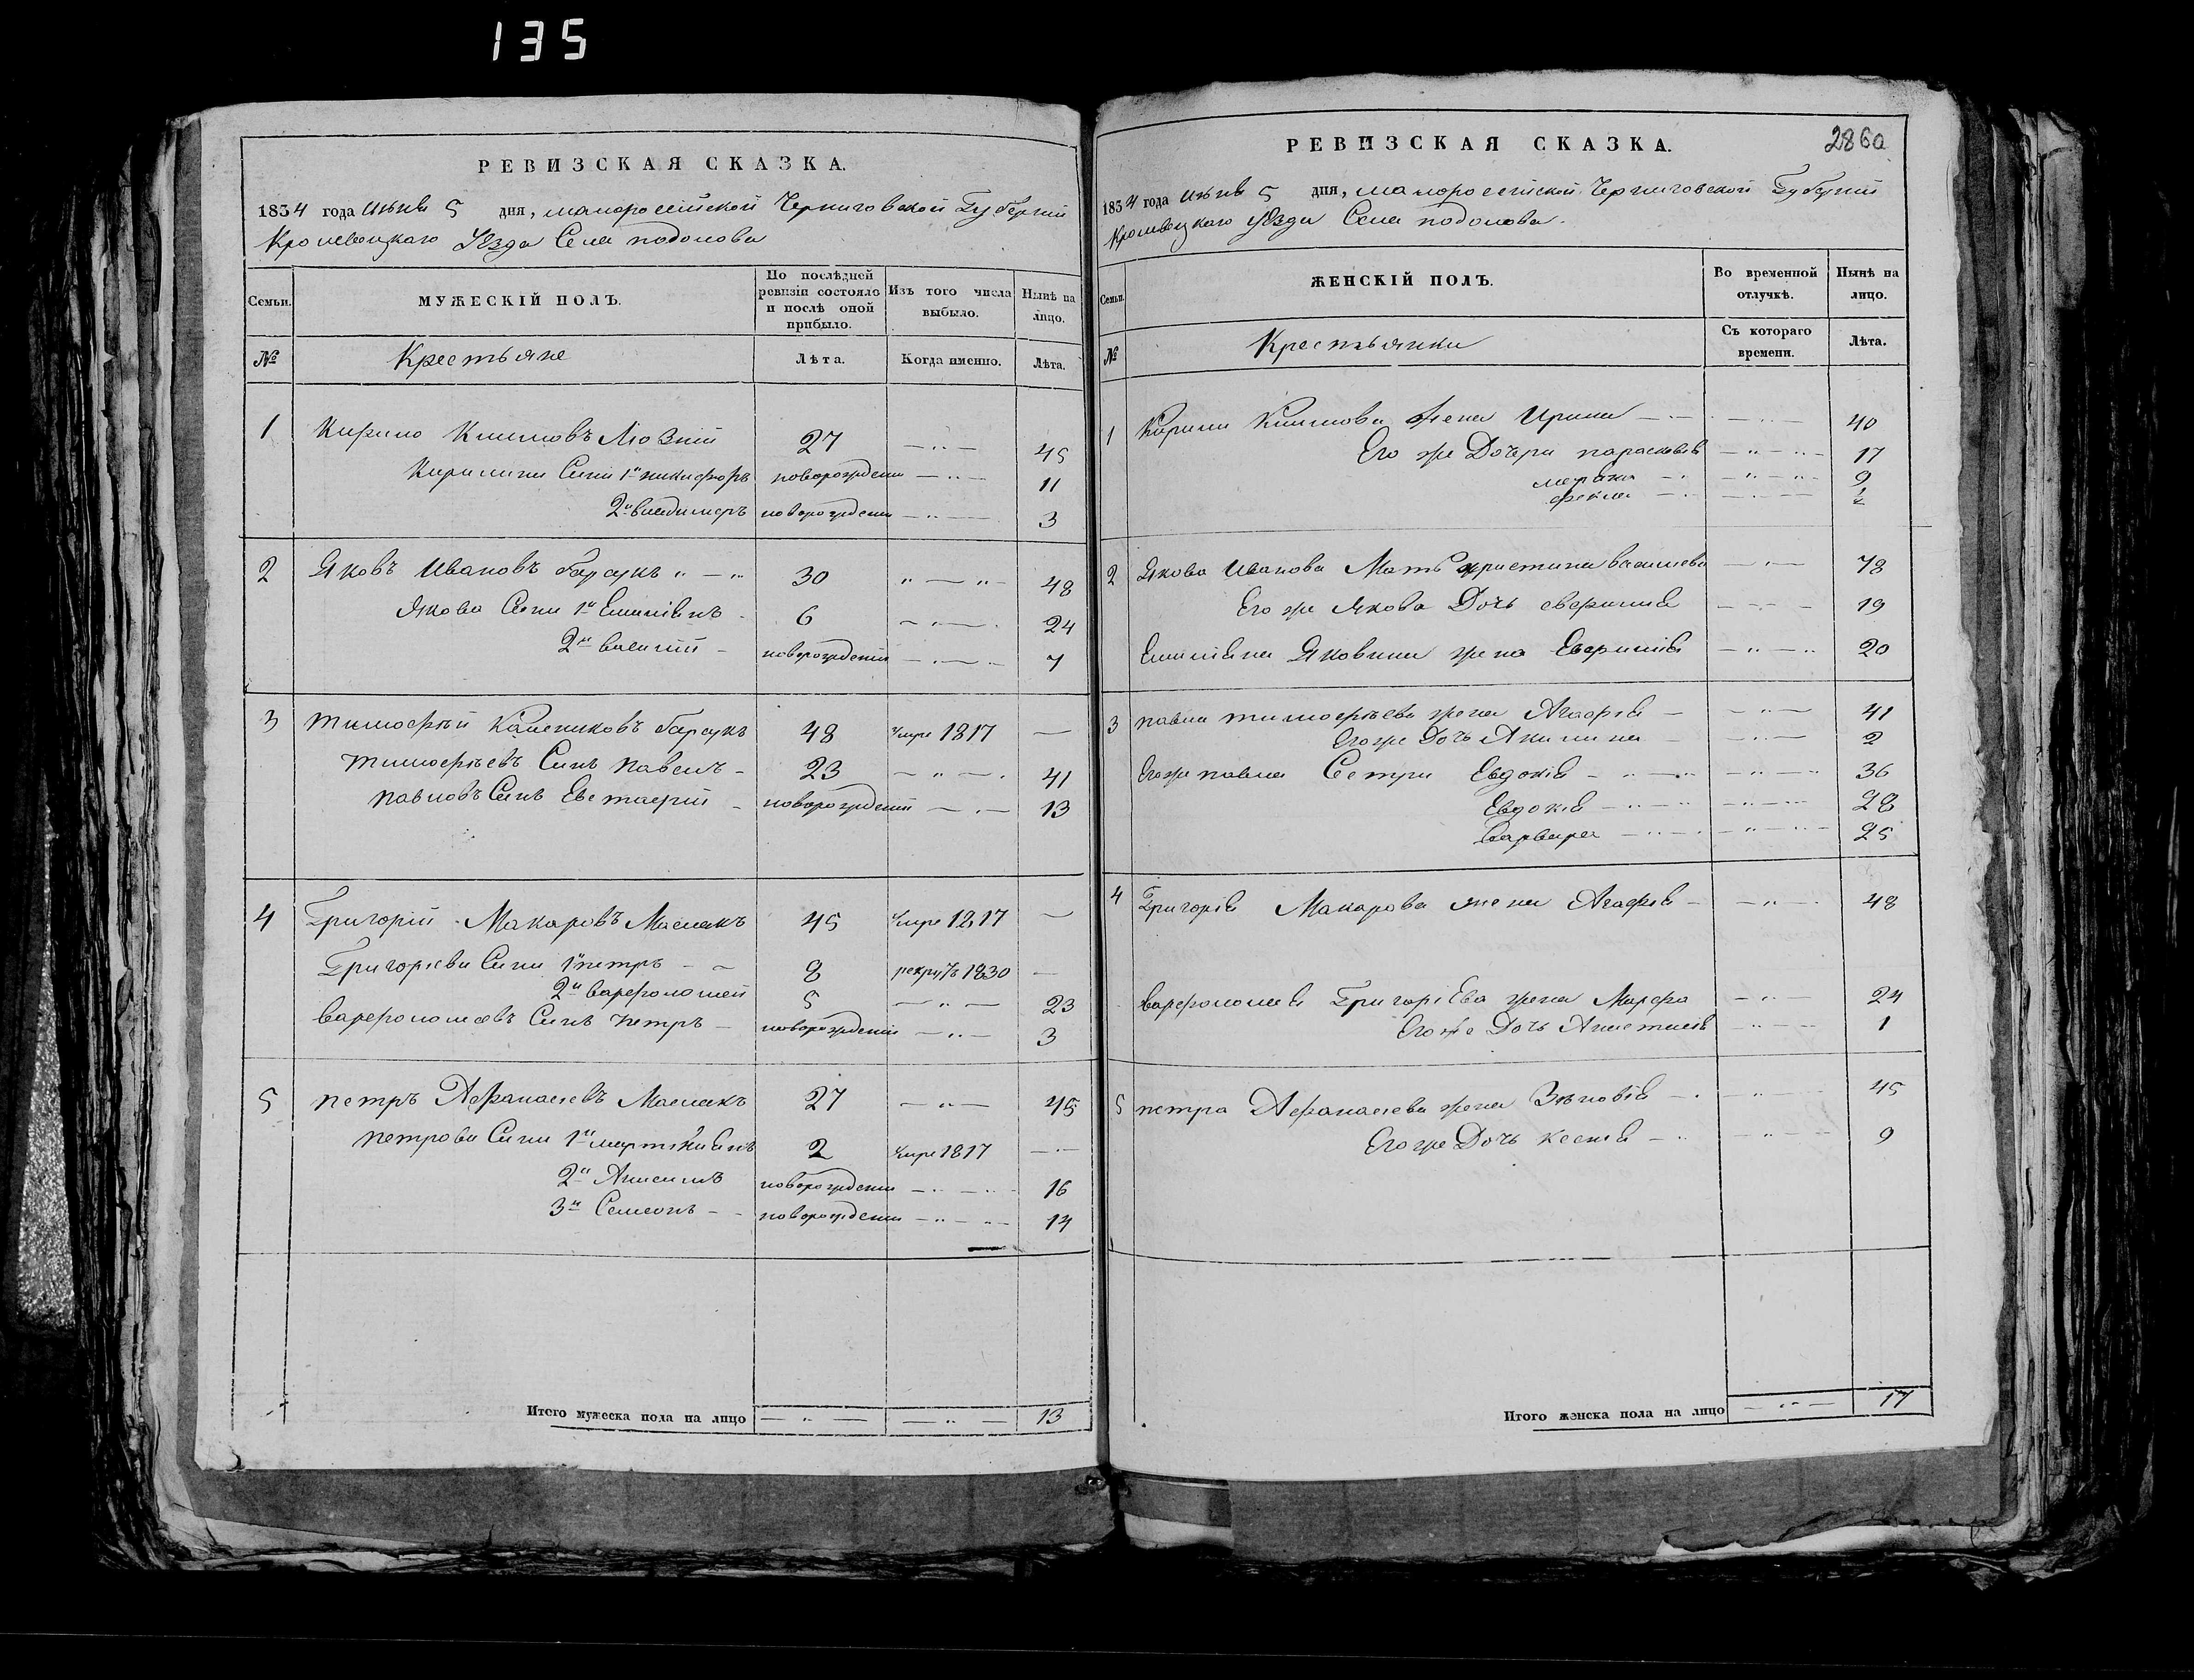 135
РЕВИЗСКАЯ СКАЗКА.
1834 года июня 5 дня, малоросийской Черниговской Губернии
Кролевецкаго Уѣзда Села подолова
Семьи. МУЖЕСКІЙ ПОЛЪ. По послѣдней ревизіи состояло и послѣ оной прибыло. Изъ того числа выбыло. Нынѣ на лицо.
№ Крестьяне Лѣта. Когда именно. Лѣта.
1 Кирило Климовъ 27 45
Кирилини Сини 1й никифоръ новорожденій 11
2й владимеръ новорожденій 3
2 Яковъ Ивановъ Барсукъ 30 48
Якова Сини 1й Емиліянъ 6 24
2й василій новорожденій 7
3 Тимофѣй Калениковъ Барсукъ 48 умре 1817
Тимофѣевъ Синъ Павелъ 23 41
Павловъ Синъ Евстафій новорожденій 13
4 Григорій Макаровъ Маслакъ 45 умре 1817
Григоріеви Сини 1й петръ 8 рекрутъ 1830
2й варфоломей 5 23
варфоломеевъ Синъ петръ новорожденій 3
5 петръ Афанасіевъ Маслакъ 27 45
петрови Сини 1й 2 умре 1817
2й новорожденій 16
3й Семеонъ новорожденій 14
Итого мужеска пола на лицо 13
2860
РЕВИЗСКАЯ СКАЗКА.
1834 года июня 5 дня, малоросейской Черниговской Губерніи
Кролевецкаго Уѣзда Села подолова
Семьи. ЖЕНСКІЙ ПОЛЪ. Во временной отлучкѣ. Нынѣ на лицо.
№ Крестьянки Съ котораго времени. Лѣта.
1 Кирила Климова жена Ирина 40
Его же Дочери параскевія 17
9
1/2
2 Якова Иванова Мать христина василева 78
Его же Якова Дочь евфимія 19
Емиліяна Яковлева жена Евфимія 20
3 павла тимофѣева жена Агафія 41
Его же Дочь Акилина 2
Его же павла Сестри Евдокія 36
Евдокія 28
Варвара 25
4 Григорія Макарова жена Агафія 48
варфоломея Григоріева жена Марфа 24
Его же Дочь Анастасія 1
5 петра Афанасіева жена Зѣновія 45
Его же Дочь ксенія 9
Итого женска пола на лицо 17